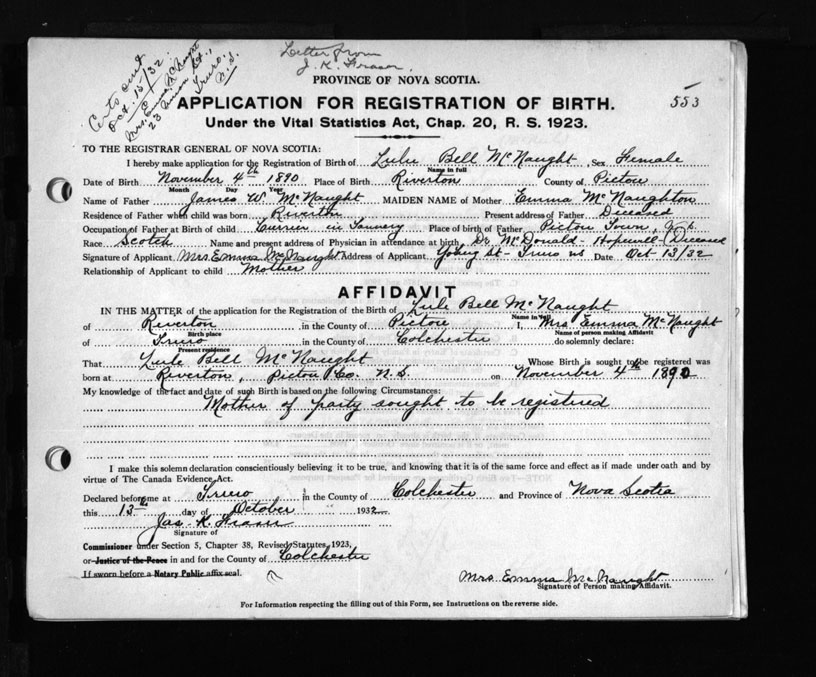 Certs out
Oct. 15/32.
Mrs. Emma McNaught
23 Union St.,
Truro,
N.S.
Letter from
J. K. Fraser.
PROVINCE OF NOVA SCOTIA.
553
APPLICATION FOR REGISTRATION OF BIRTH.
Under the Vital Statistics Act, Chap. 20, R. S. 1923.
TO THE REGISTRAR GENERAL OF NOVA SCOTIA:
I hereby make application for the Registration of Birth of Lulu Bell McNaught, Sex Female
Name in full
Date of Birth November 4th 1890 Place of Birth Riverton County of Pictou
Month Day Year
Name of Father James W. McNaught MAIDEN NAME of Mother Emma McNaughton
Residence of Father when child was born Riverton Present address of Father Deceased
Occupation of Father at Birth of child Currier in Tannery Place of birth of Father Pictou Town, N.S.
Race Scotch Name and present address of Physician in attendance at birth Dr. McDonald - Hopewell - (Deceased
Signature of Applicant Mrs Emma McNaught Address of Applicant St - Truro NS Date Oct 13/32
Relationship of Applicant to child Mother
AFFIDAVIT
IN THE MATTER of the application for the Registration of the Birth of Lule Bell McNaught
Name in full
of Riverton in the County of Pictou I, Mrs Emma McNaught
Birth place Name of person making Affidavit
of Truro in the County of Colchester do solemnly declare:
Present residence
That Lule Bell McNaught Whose Birth is sought to be registered was
born at Riverton, Pictou Co. N.S. on November 4th 1890
My knowledge of the fact and date of such Birth is based on the following Circumstances:
Mother of party sought to be registered
I make this solemn declaration conscientiously believing it to be true, and knowing that it is of the same force and effect as if made under oath and by
virtue of The Canada Evidence Act.
Declared before me at Truro in the County of Colchester and Province of Nova Scotia
this 13th day of October 1932
Jas. K. Fraser
Signature of
Commissioner under Section 5, Chapter 38, Revised Statutes, 1923,
or Justice of the Peace in and for the County of Colchester
If sworn before a Notary Public affix seal.
Mrs. Emma McNaught
Signature of Person making Affidavit.
For Information respecting the filling out of this Form, see Instructions on the reverse side.